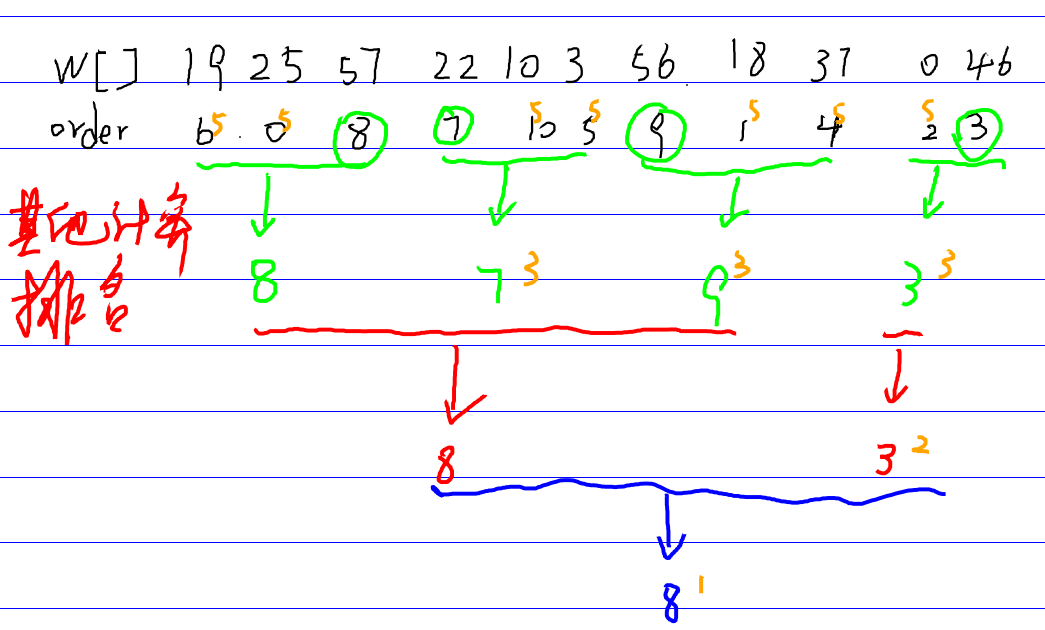 W[] 19 25 57 22 10 3 56 18 37 0 46
order 6 5 0 5 8 7 10 5 5 5 9 1 5 4 5 2 5 3
计算
排名
8 7 3 9 3 3 3
8 3 2
8 1